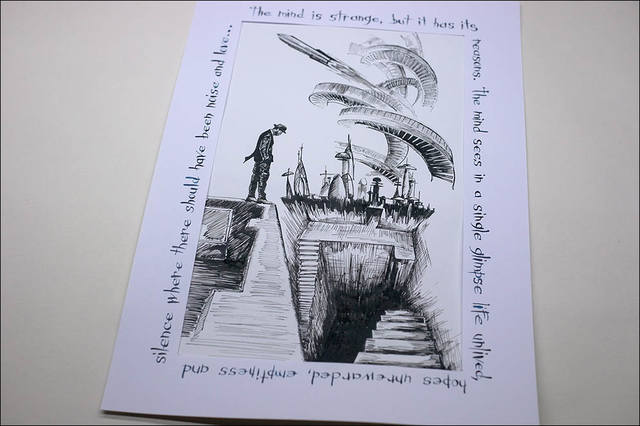 The mind is strange, but it has its
reasons. The mind sees in a single glimpse life unlived,
hopes unrewarded, emptiness and
silence where there should have been noise and love...